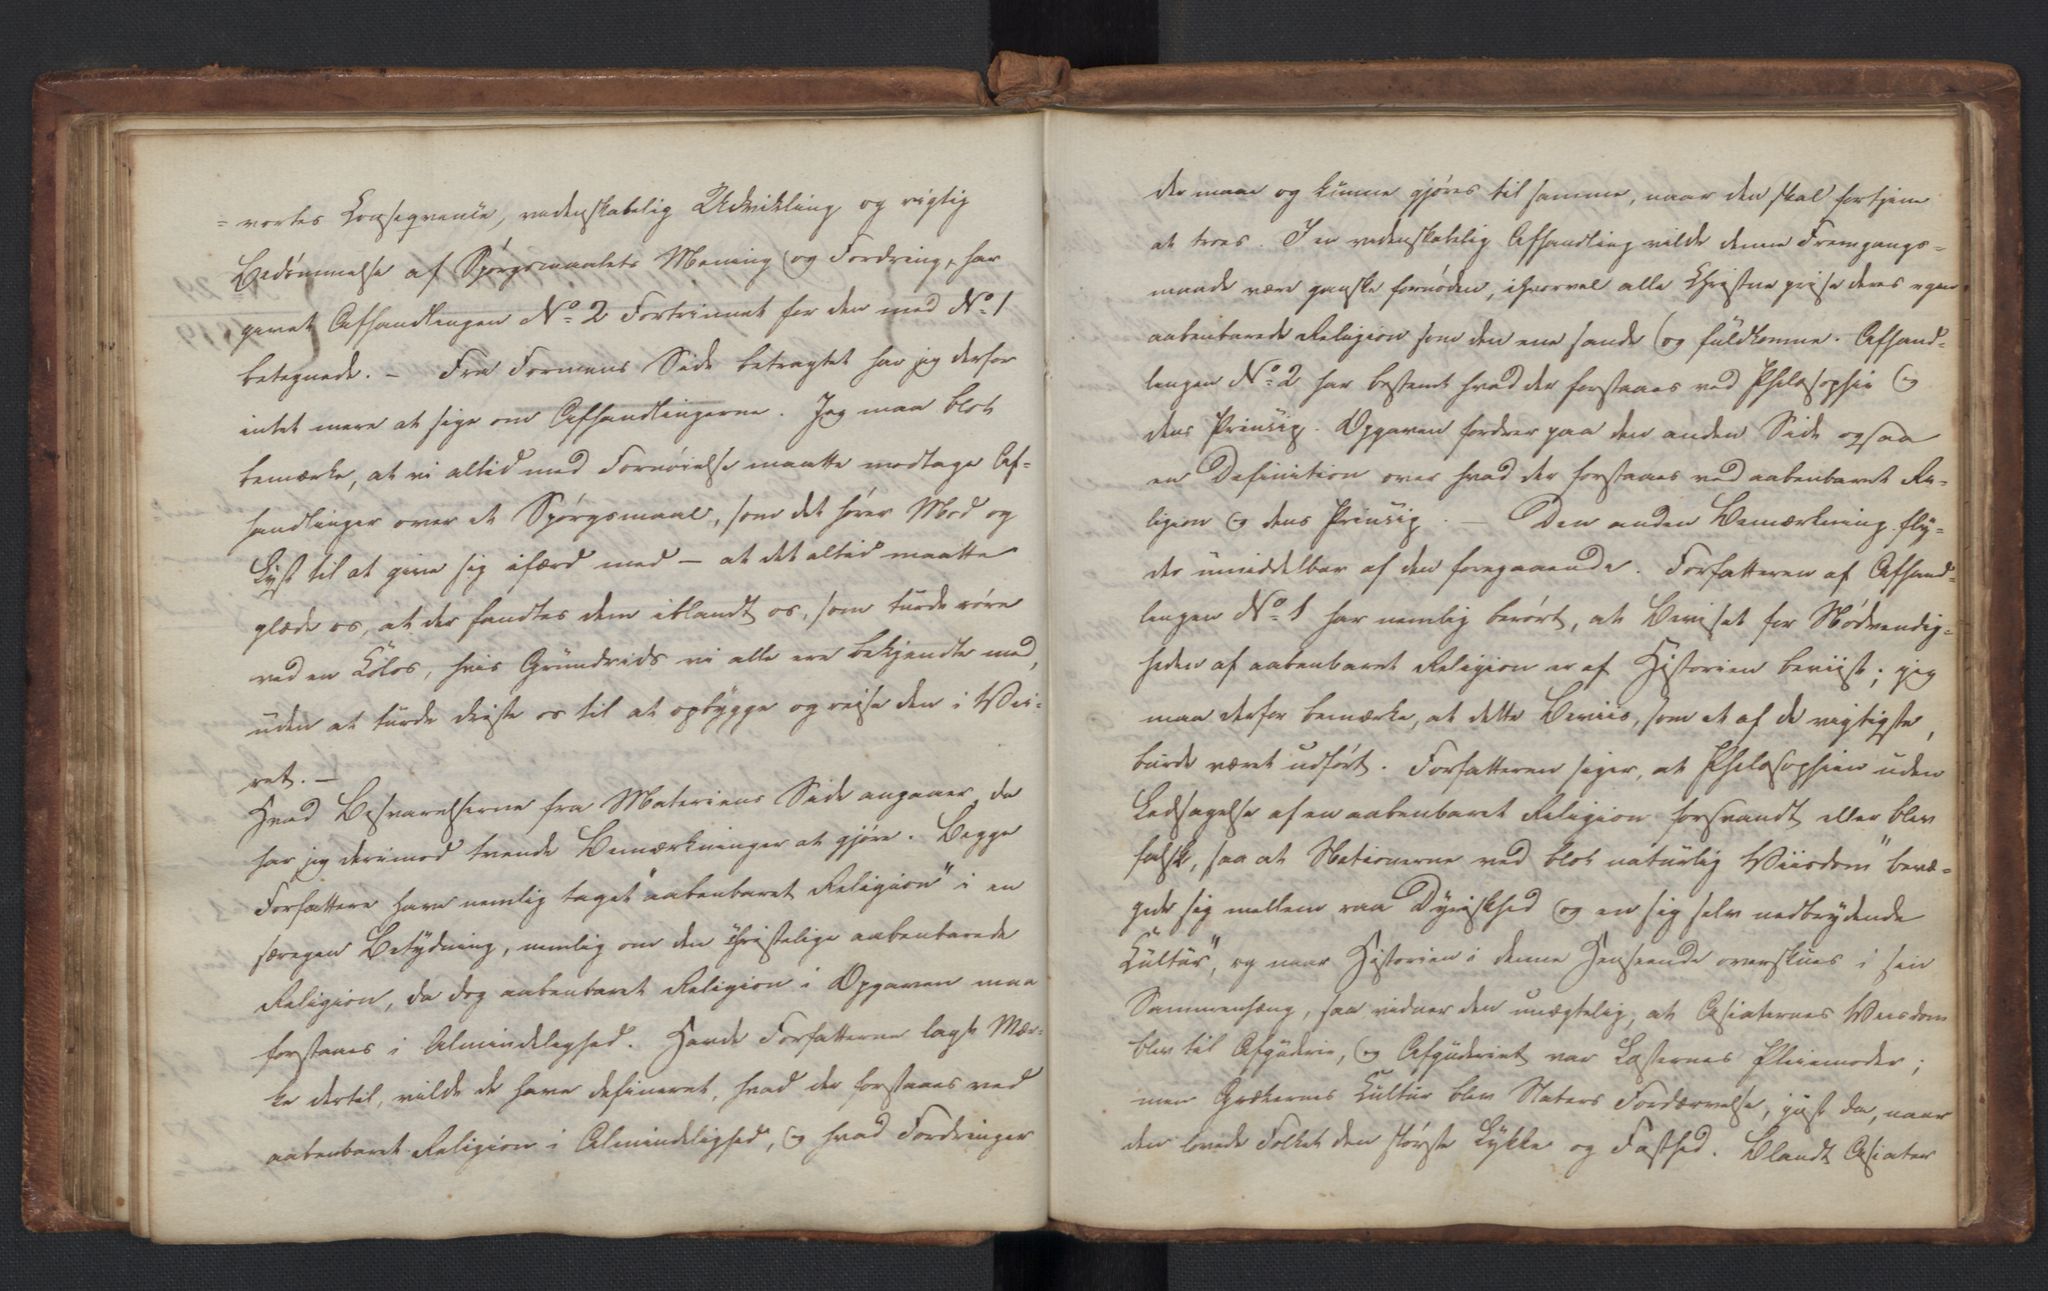 = vortes Conseqvense, videnskabelig Udvikling og rigtig
Bedömmelse af Spörgsmaalets Mening og Fordring, har
givet Afhandlingen No 2 Fortrinnet for den med No 1
betegnede. – Fra Formens Side betragtet har jeg derfor
intet mere at sige om Afhandlingerne. Jeg maa blot
bemærke, at vi altid med Fornöielse maatte modtage Af-
handlinger over et Spörgsmaal, som det hörer Mod og
Lyst til at give sig ifærd med – at det altid maatte
glæde os, at der fandtes dem iblandt os, som turde röre
ved en Colos, hvis Grundrids vi alle ere bekjendte med,
uden at turde driste os til at opbygge og reise den i Vei-
ret. –
Hvad Besvarelserne fra Materiens Side angaaer, da
har jeg derimod tvende Bemærkninger at gjöre. Begge
Forfattere have nemlig taget "aabenbaret Religion" i en
særegen Betydning, nemlig om den christelige aabenbarede
Religion, da dog aabenbaret Religion i Opgaven maa
forstaaes i Almindelighed. Havde Forfatterne lagt Mær-
ke dertil, vilde de have defineret, hvad der forstaaes ved
aabenbaret Religion i Almindelighed, og hvad Fordringer
der maae og kunne gjöres til samme, naar den skal fortjene
at troes. I en videnskabelig Afhandling vilde denne Fremgangs-
maade være ganske fornöden, ihvorvel alle Christne prise deres egen
aabenbarede Religion som den ene sande og fuldkomne. Afhand-
lingen No 2 har bestemt hvad der forstaaes ved Philosophie og
dens Princip. Opgaven fordrer paa den anden Side ogsaa
en Definition over hvad der forstaaes ved aabenbaret Re-
ligion og dens Princip. – Den anden Bemærkning fly-
der umiddelbar af den foregaaende. Forfatteren af Afhand-
lingen No 1 har nemlig berört, at Beviset for Nödvendig-
heden af aabenbaret Religion er af Historien beviist; jeg
maa derfor bemærke, at dette Beviis, som et af de vigtigste,
burde været udfört. Forfatteren siger, at Philosophien uden
Ledsagelse af en aabenbaret Religion forsvandt eller blev
falsk, saa at Nationerne ved blot naturlig Viisdom" bevæ-
gede sig mellem raa Dyriskhed og en sig selv nedbrydende
Cultur", og naar Historien i denne Henseende overskues i sin
Sammenhæng, saa vidner den unægtelig, at Asiaternes Viisdom
blev til Afguderie, og Afguderiet var Lasternes Pleiemoder;
men Grækernes Cultur blev Staters Fordærvelse, just da, naar
den lovede Folket den störste Lykke og Fasthed. Blandt Asiater